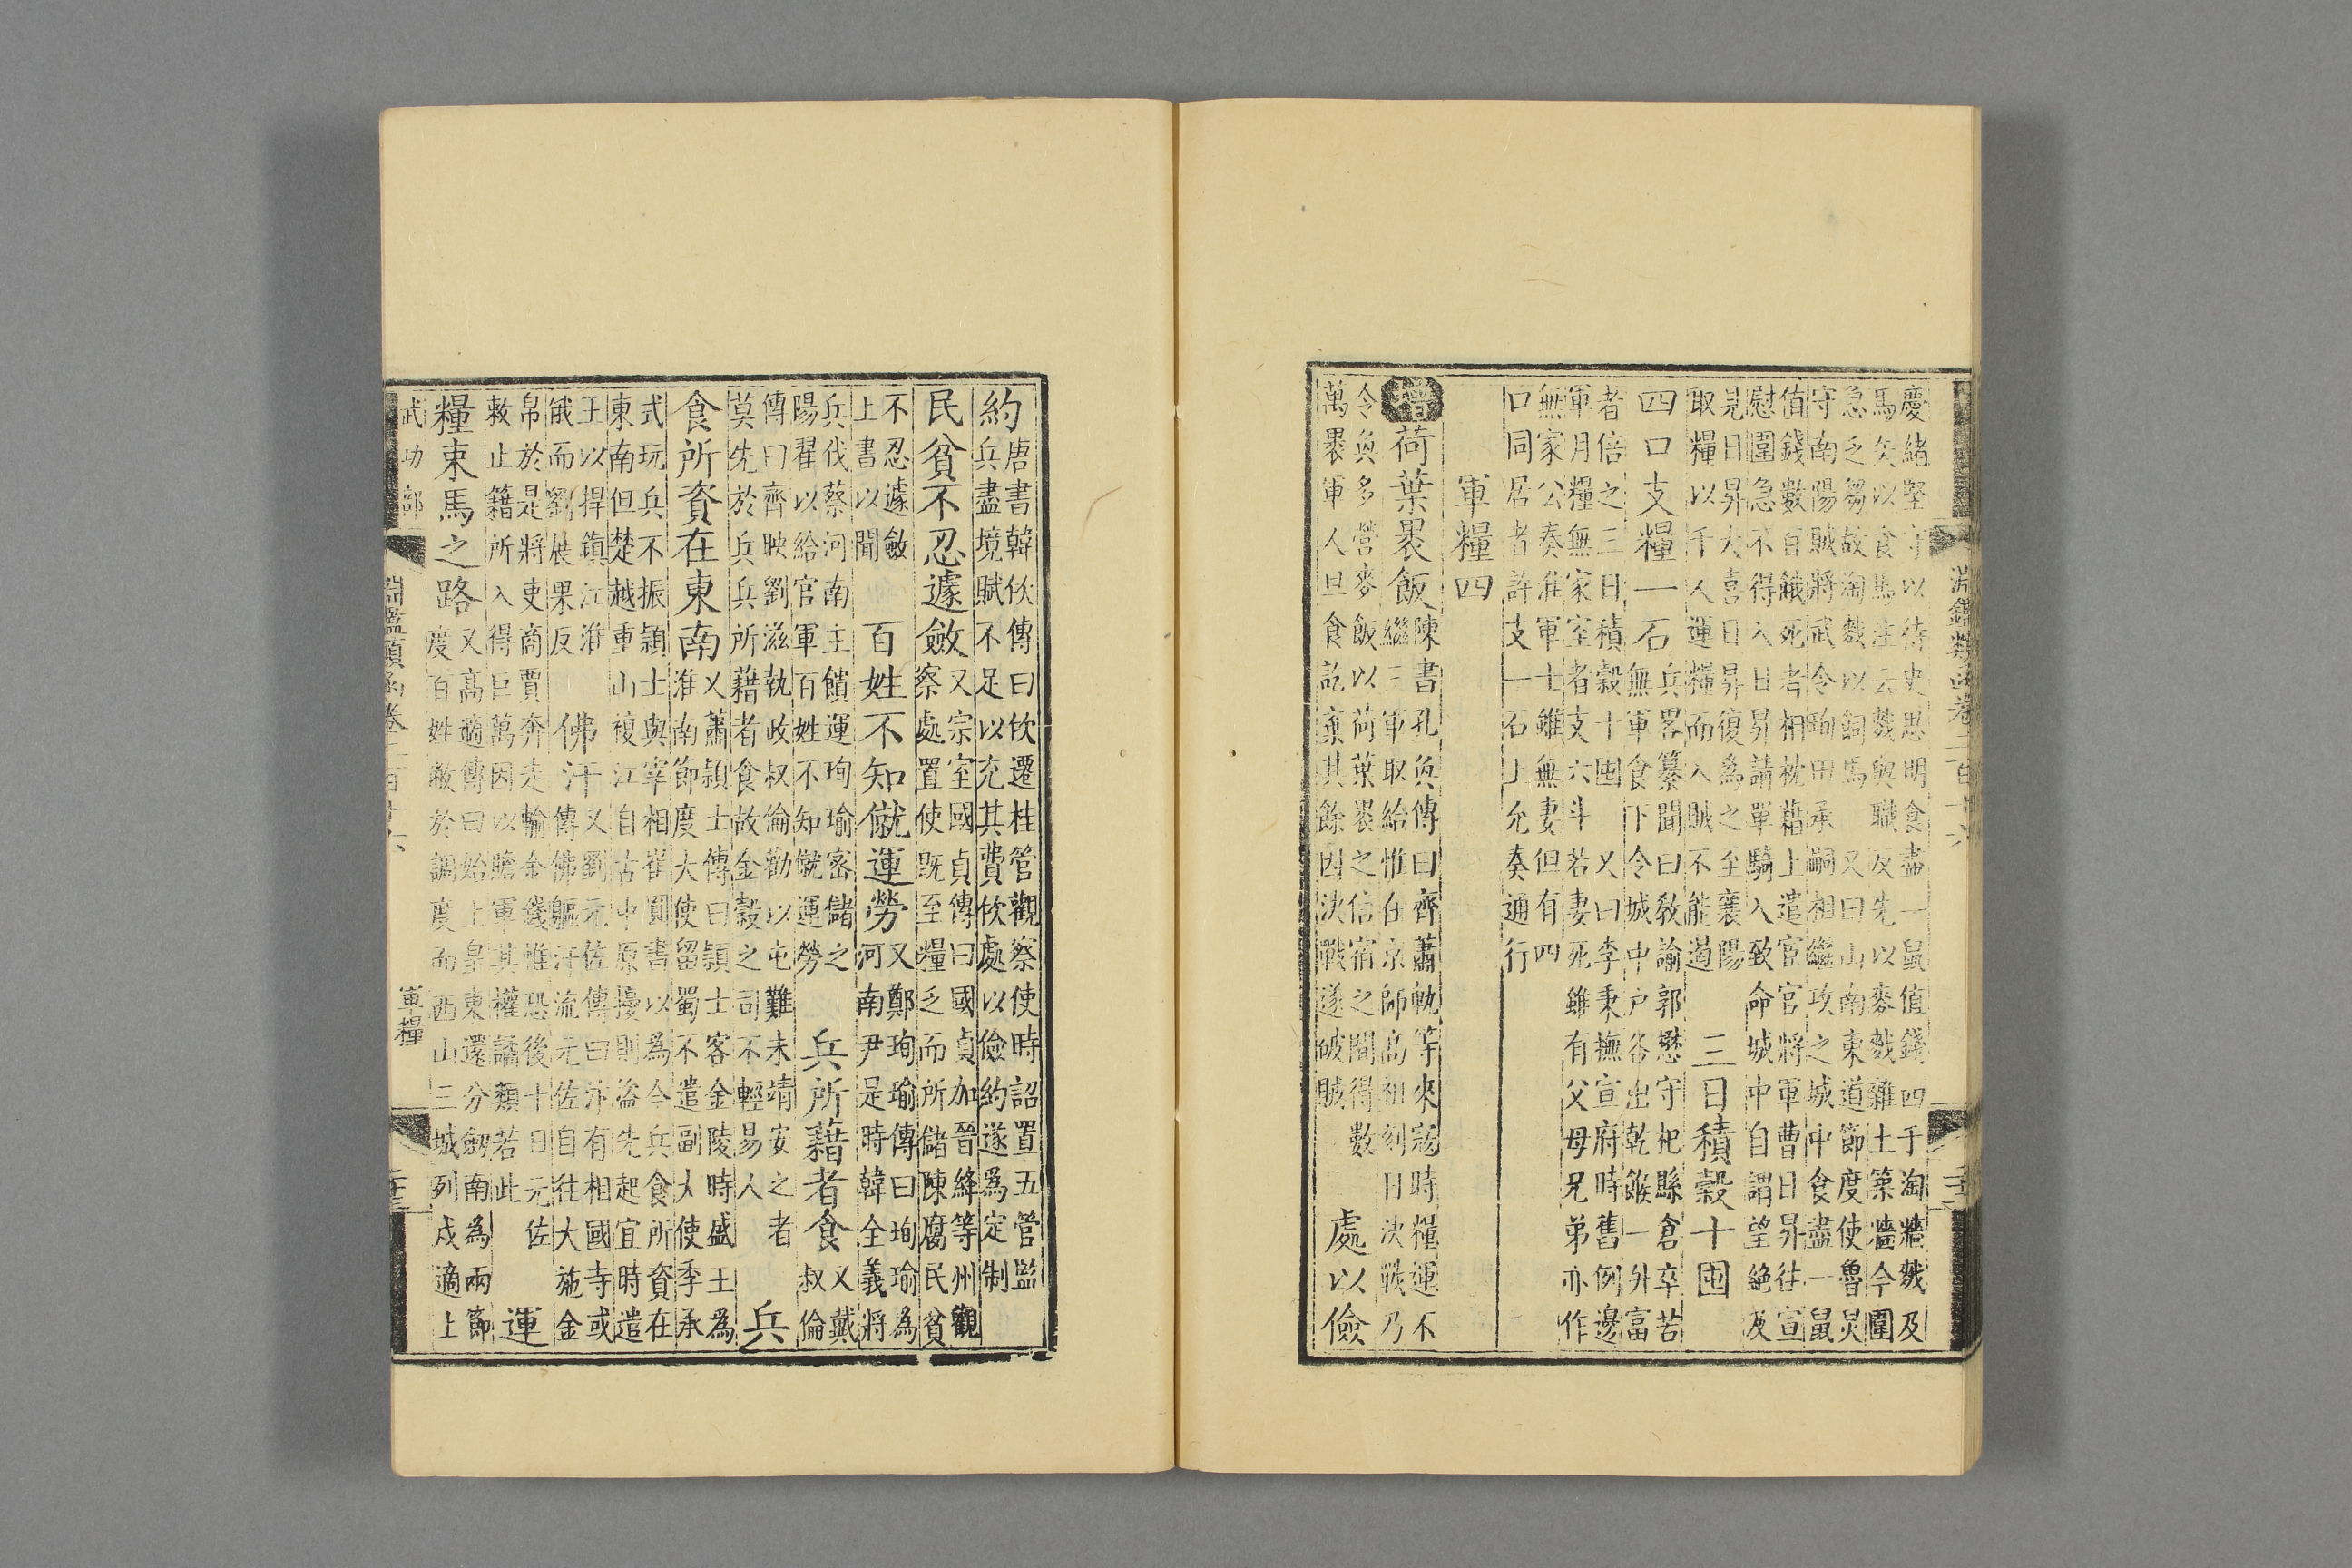 慶緒堅守以待史思明食盡一鼠值錢四千淘牆㪍及
馬矢以食馬注云㪍與職反先以麥㪍雜土築牆今圍
急乏芻故淘㪍以飼馬又曰山南東道節度使魯炅
守南陽賊將武令珣田承嗣相繼攻之城中食盡一鼠
值錢數百餓死者相枕藉上遣宦官將軍曹日昇往宣
慰圍急不得入日昇請單騎入致命城中自謂望絕及
見日昇大喜日昇復為之至襄陽
取糧以千人運糧而入賊不能遏
三日積穀十囤
四口支糧一石
兵畧纂聞曰教諭郭懋守杞縣倉卒苦
無軍食下令城中戶各出乾餱一升富
者倍之三日積穀十囤又曰李秉撫宣府時舊例邊
軍月糧無家室者支六斗若妻死雖有父母兄弟亦作
無家公奏准軍士雖無妻但有四
口同居者許支一石上允奏通行
軍糧四
增荷葉褁飯
陳書孔奐傳曰齊蕭軌等來寇時糧運不
繼三軍取給惟在京師高祖刻日決戰乃
令奐多營麥飯以荷葉褁之信宿之間得數
萬褁軍人旦食訖棄其餘因決戰遂破賊
處以儉
約
唐書韓佽傳曰佽遷桂管觀察使時詔置五管監
兵盡境賦不足以充其費佽處以儉約遂為定制
民貧不忍遽斂
又宗室國貞傳曰國貞加晉絳等州觀
察處置使既至糧乏而所儲陳腐民貧
不忍遽斂
上書以聞
百姓不知僦運勞
又鄭珣瑜傳曰珣瑜為
河南尹是時韓全義將
兵伐蔡河南主饋運珣瑜密儲之
陽翟以給官軍百姓不知僦運勞
兵所藉者食
又戴
叔倫
傳曰齊映劉滋執政叔倫勸以屯難未靖安之者
莫先於兵兵所藉者食故金穀之司不輕易人
兵
食所資在東南
又蕭穎士傳曰穎士客金陵時盛王為
淮南節度大使留蜀不遣副大使季承
式玩兵不振穎士與宰相崔圓書以為今兵食所資在
東南但楚越重山複江自古中原擾則盜先起宜時遣
王以捍鎮江淮
俄而劉展果反
佛汗
又劉元佐傳曰汴有相國寺或
傳佛軀汗流元佐自往大施金
帛於是將吏商賈奔走輸金錢惟恐後十日元佐
敕止籍所入得巨萬因以贍軍其權譎類若此
運
糧束馬之路
又高適傳曰始上皇東還分劒南為兩節
度百姓敝於調度而西山三城列戍適上
武功部
淵鑑類函卷二百十六
軍糧